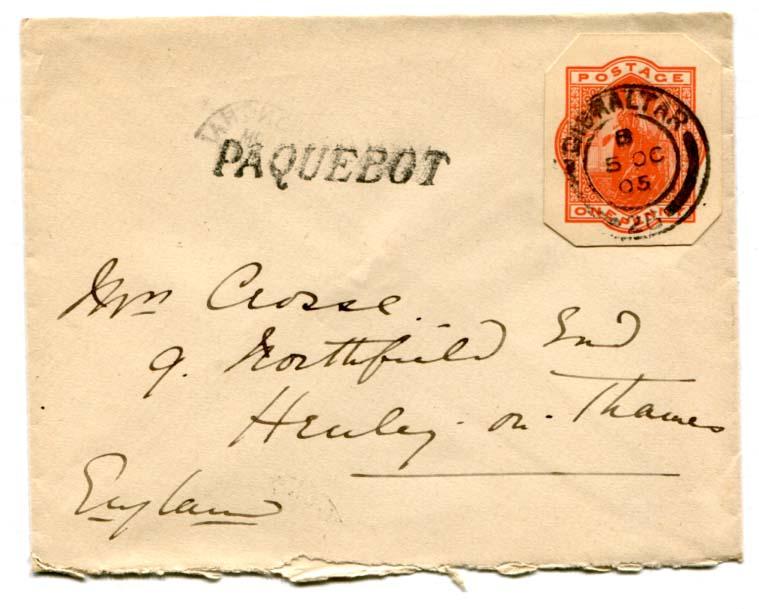 POSTAGE
GIBRALTAR
B
5 OC
05
ONE PENNY
26
PAQUEBOT
Mrs Crosse.
9. Northfield End
Henley-on-Thames
England